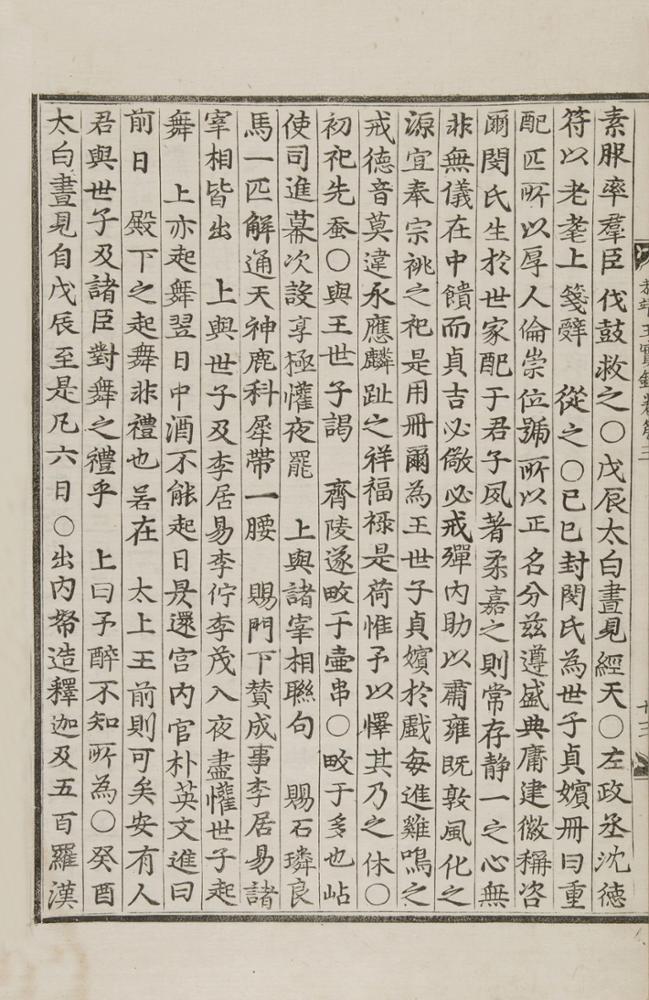 素服率羣臣伐鼓救之○戊辰太白晝見經天○左政丞沈德
符以老耄上箋辭 從之○己巳封閔氏為世子貞嬪冊曰重
配匹所以厚人倫崇位號所以正名分玆遵盛典庸建徽稱咨
爾閔氏生於世家配于君子夙著柔嘉之則常存静一之心無
非無儀在中饋而貞吉必儆必戒殫內助以肅雍既敦風化之
源宜奉宗祧之祀是用冊爾為王世子貞嬪於戲每進雞鳴之
戒德音莫違永應麟趾之祥福祿是荷惟予以懌其乃之休○
初祀先蚕○與王世子謁 齊陵遂畋于壷串○畋于多也岾
使司進幕次設享極懽夜罷 上與諸宰相聯句 賜石璘良
馬一匹解通天神鹿科犀帶一腰 賜門下賛成事李居易諸
宰相皆出 上與世子及李居易李佇李茂入夜盡懽世子起
舞 上亦起舞翌日中酒不能起日昃還宮內官朴英文進曰
前日 殿下之起舞非禮也若在 太上王前則可矣安有人
君與世子及諸臣對舞之禮乎 上曰予醉不知所為○癸酉
太白晝見自戊辰至是凡六日○出內帑造釋迦及五百羅漢